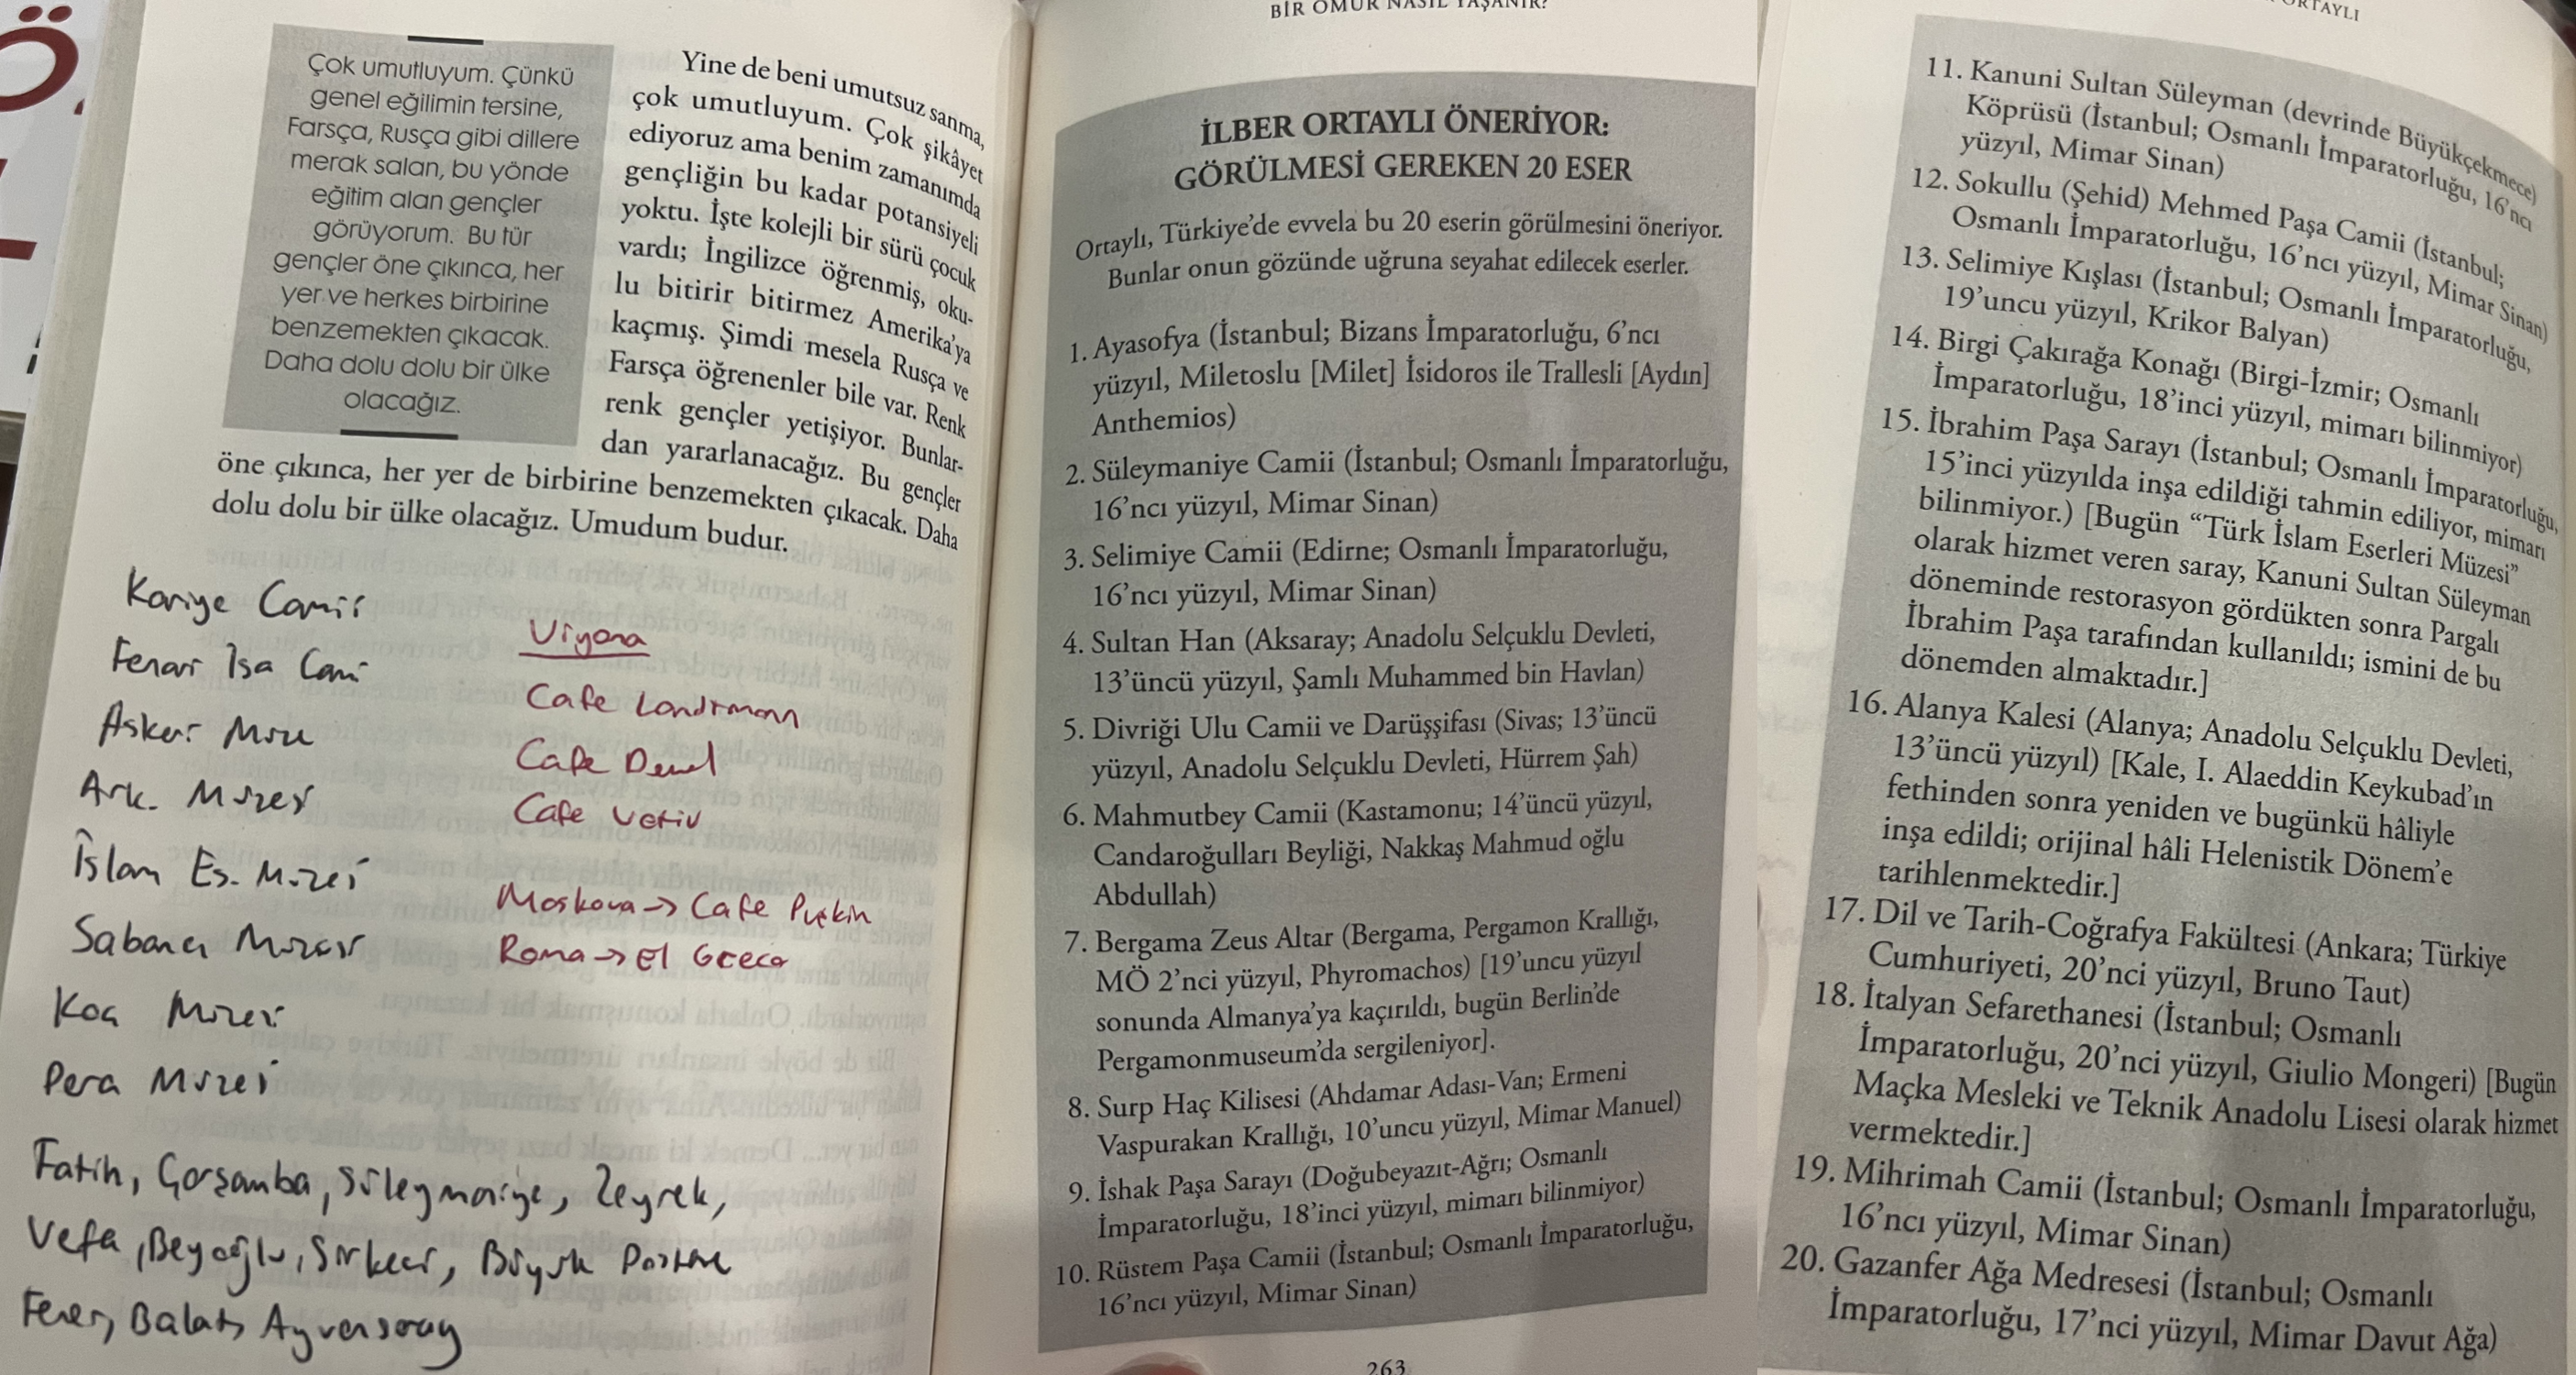 Çok umutluyum. Çünkü
genel eğilimin tersine,
Farsça, Rusça gibi dillere
merak salan, bu yönde
eğitim alan gençler
görüyorum. Bu tür
gençler öne çıkınca, her
yer ve herkes birbirine
benzemekten çıkacak.
Daha dolu dolu bir ülke
olacağız.
Yine de beni umutsuz sanma,
çok umutluyum. Çok şikâyet
ediyoruz ama benim zamanımda
gençliğin bu kadar potansiyeli
yoktu. İşte kolejli bir sürü çocuk
vardı; İngilizce öğrenmiş, oku-
lu bitirir bitirmez Amerika'ya
kaçmış. Şimdi mesela Rusça ve
Farsça öğrenenler bile var. Renk
renk gençler yetişiyor. Bunlar-
dan yararlanacağız. Bu gençler
öne çıkınca, her yer de birbirine benzemekten çıkacak. Daha
dolu dolu bir ülke olacağız. Umudum budur.
Kariye Camii
Fenari İsa Cami
Askeri Müze
Ark. Müzesi
İslam Es. Müzesi
Sabancı Müzesi
Koç Müzesi
Pera Müzesi
Fatih, Çarşamba, Süleymaniye, Zeyrek,
Vefa, Beyoğlu, Sirkeci, Büyük Postane
Fener, Balat, Ayvansaray
Viyana
Cafe Landtmann
Cafe Demel
Cafe
Moskova → Cafe Puşkin
Roma → El Greco
BİR ÖMÜR NASIL YAŞANIR?
İLBER ORTAYLI ÖNERİYOR:
GÖRÜLMESİ GEREKEN 20 ESER
Ortaylı, Türkiye'de evvela bu 20 eserin görülmesini öneriyor.
Bunlar onun gözünde uğruna seyahat edilecek eserler.
1. Ayasofya (İstanbul; Bizans İmparatorluğu, 6'ncı
yüzyıl, Miletoslu [Milet] İsidoros ile Trallesli [Aydın]
Anthemios)
2. Süleymaniye Camii (İstanbul; Osmanlı İmparatorluğu,
16'ncı yüzyıl, Mimar Sinan)
3. Selimiye Camii (Edirne; Osmanlı İmparatorluğu,
16'ncı yüzyıl, Mimar Sinan)
4. Sultan Han (Aksaray; Anadolu Selçuklu Devleti,
13'üncü yüzyıl, Şamlı Muhammed bin Havlan)
5. Divriği Ulu Camii ve Darüşşifası (Sivas; 13'üncü
yüzyıl, Anadolu Selçuklu Devleti, Hürrem Şah)
6. Mahmutbey Camii (Kastamonu; 14'üncü yüzyıl,
Candaroğulları Beyliği, Nakkaş Mahmud oğlu
Abdullah)
7. Bergama Zeus Altar (Bergama, Pergamon Krallığı,
MÖ 2'nci yüzyıl, Phyromachos) [19'uncu yüzyıl
sonunda Almanya'ya kaçırıldı, bugün Berlin'de
Pergamonmuseum'da sergileniyor].
8. Surp Haç Kilisesi (Ahdamar Adası-Van; Ermeni
Vaspurakan Krallığı, 10'uncu yüzyıl, Mimar Manuel)
9. İshak Paşa Sarayı (Doğubeyazıt-Ağrı; Osmanlı
İmparatorluğu, 18'inci yüzyıl, mimarı bilinmiyor)
10. Rüstem Paşa Camii (İstanbul; Osmanlı İmparatorluğu,
16'ncı yüzyıl, Mimar Sinan)
263
ORTAYLI
11. Kanuni Sultan Süleyman (devrinde Büyükçekmece)
Köprüsü (İstanbul; Osmanlı İmparatorluğu, 16'ncı
yüzyıl, Mimar Sinan)
12. Sokullu (Şehid) Mehmed Paşa Camii (İstanbul;
Osmanlı İmparatorluğu, 16'ncı yüzyıl, Mimar Sinan)
13. Selimiye Kışlası (İstanbul; Osmanlı İmparatorluğu,
19'uncu yüzyıl, Krikor Balyan)
14. Birgi Çakırağa Konağı (Birgi-İzmir; Osmanlı
İmparatorluğu, 18'inci yüzyıl, mimarı bilinmiyor)
15. İbrahim Paşa Sarayı (İstanbul; Osmanlı İmparatorluğu,
15'inci yüzyılda inşa edildiği tahmin ediliyor, mimarı
bilinmiyor.) [Bugün “Türk İslam Eserleri Müzesi”
olarak hizmet veren saray, Kanuni Sultan Süleyman
döneminde restorasyon gördükten sonra Pargalı
İbrahim Paşa tarafından kullanıldı; ismini de bu
dönemden almaktadır.]
16. Alanya Kalesi (Alanya; Anadolu Selçuklu Devleti,
13'üncü yüzyıl) [Kale, I. Alaeddin Keykubad'ın
fethinden sonra yeniden ve bugünkü hâliyle
inşa edildi; orijinal hâli Helenistik Dönem'e
tarihlenmektedir.]
17. Dil ve Tarih-Coğrafya Fakültesi (Ankara; Türkiye
Cumhuriyeti, 20'nci yüzyıl, Bruno Taut)
18. İtalyan Sefarethanesi (İstanbul; Osmanlı
İmparatorluğu, 20'nci yüzyıl, Giulio Mongeri) [Bugün
Maçka Mesleki ve Teknik Anadolu Lisesi olarak hizmet
vermektedir.]
19. Mihrimah Camii (İstanbul; Osmanlı İmparatorluğu,
16'ncı yüzyıl, Mimar Sinan)
20. Gazanfer Ağa Medresesi (İstanbul; Osmanlı
İmparatorluğu, 17'nci yüzyıl, Mimar Davut Ağa)